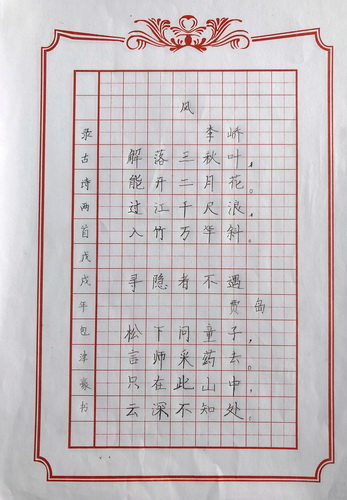 风
李峤
解落三秋叶，
能开二月花。
过江千尺浪，
入竹万竿斜。
寻隐者不遇
贾岛
松下问童子，
言师采药去。
只在此山中，
云深不知处。
录古诗两首戊戌年包津豪书